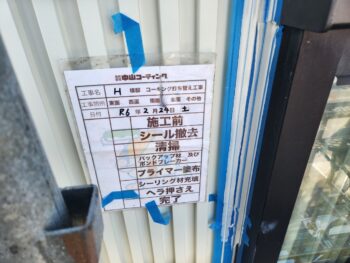 ㈱中山コーティング
工事名 H 様邸 コーキング打ち替え工事
工事箇所 東面 西面 南面 北面 その他
日付 R6 年 2 月 24 日 土
施工前
シール撤去
清掃
バックアップ材 及び
ボンドブレーカー
プライマー塗布
シーリング材充填
ヘラ押さえ
完了